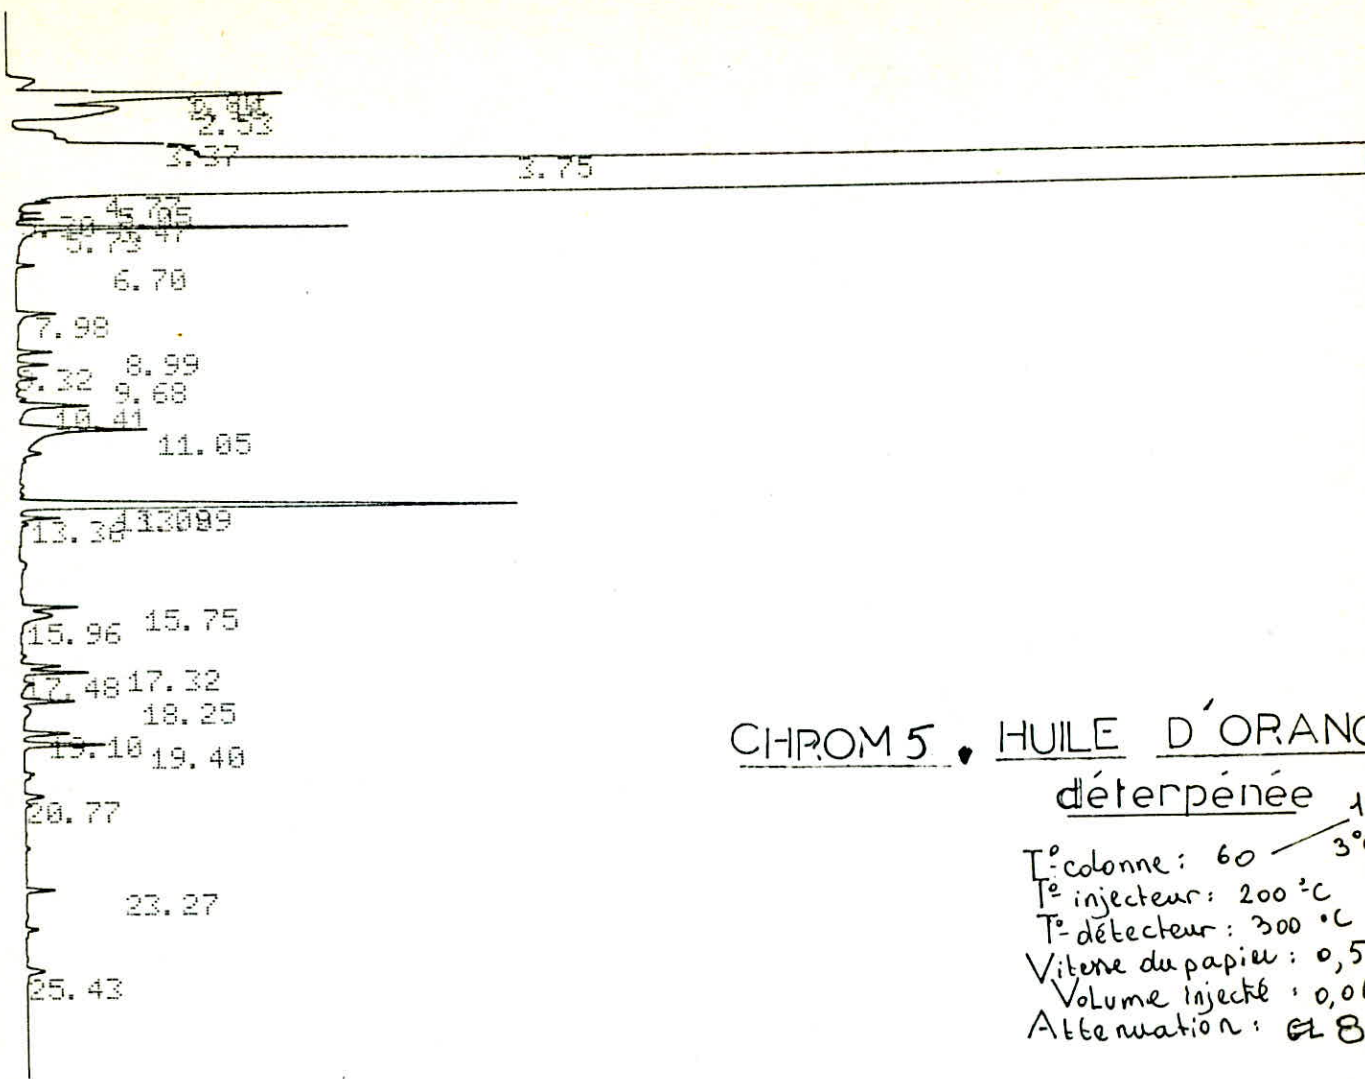 2.53
3.37
3.75
4.77
5.05
5.79
6.70
7.98
8.99
9.68
10.41
11.05
13.36
15.75
15.96
17.32
17.48
18.25
19.10
19.40
20.77
23.27
25.43
CHROM 5. HUILE D'ORANG
déterpénée
T° colonne: 60
3°
T° injecteur: 200 °C
T° détecteur: 300 °C
Vitesse du papier: 0,5
Volume injecté: 0,0
Attenuation: 8